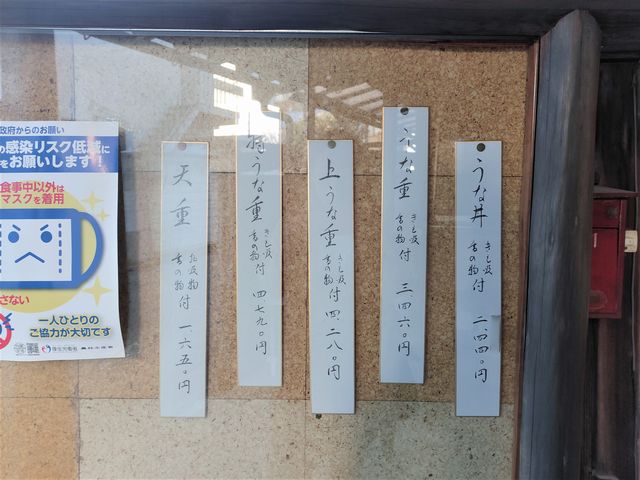 うな丼 きも吸 香の物 付 二、四四〇円
うな重 きも吸 香の物 付 三四六〇円
上うな重 きも吸 香の物 付 四、一二八〇円
うな重 きも吸 香の物 付 四七九〇円
天重 お吸物 香の物 付 一、六五〇円
政府からのお願い
の感染リスク低減に
をお願いします！
食事中以外は
マスクを着用
さない
一人ひとりの
ご協力が大切です
厚生労働省 農林水産省